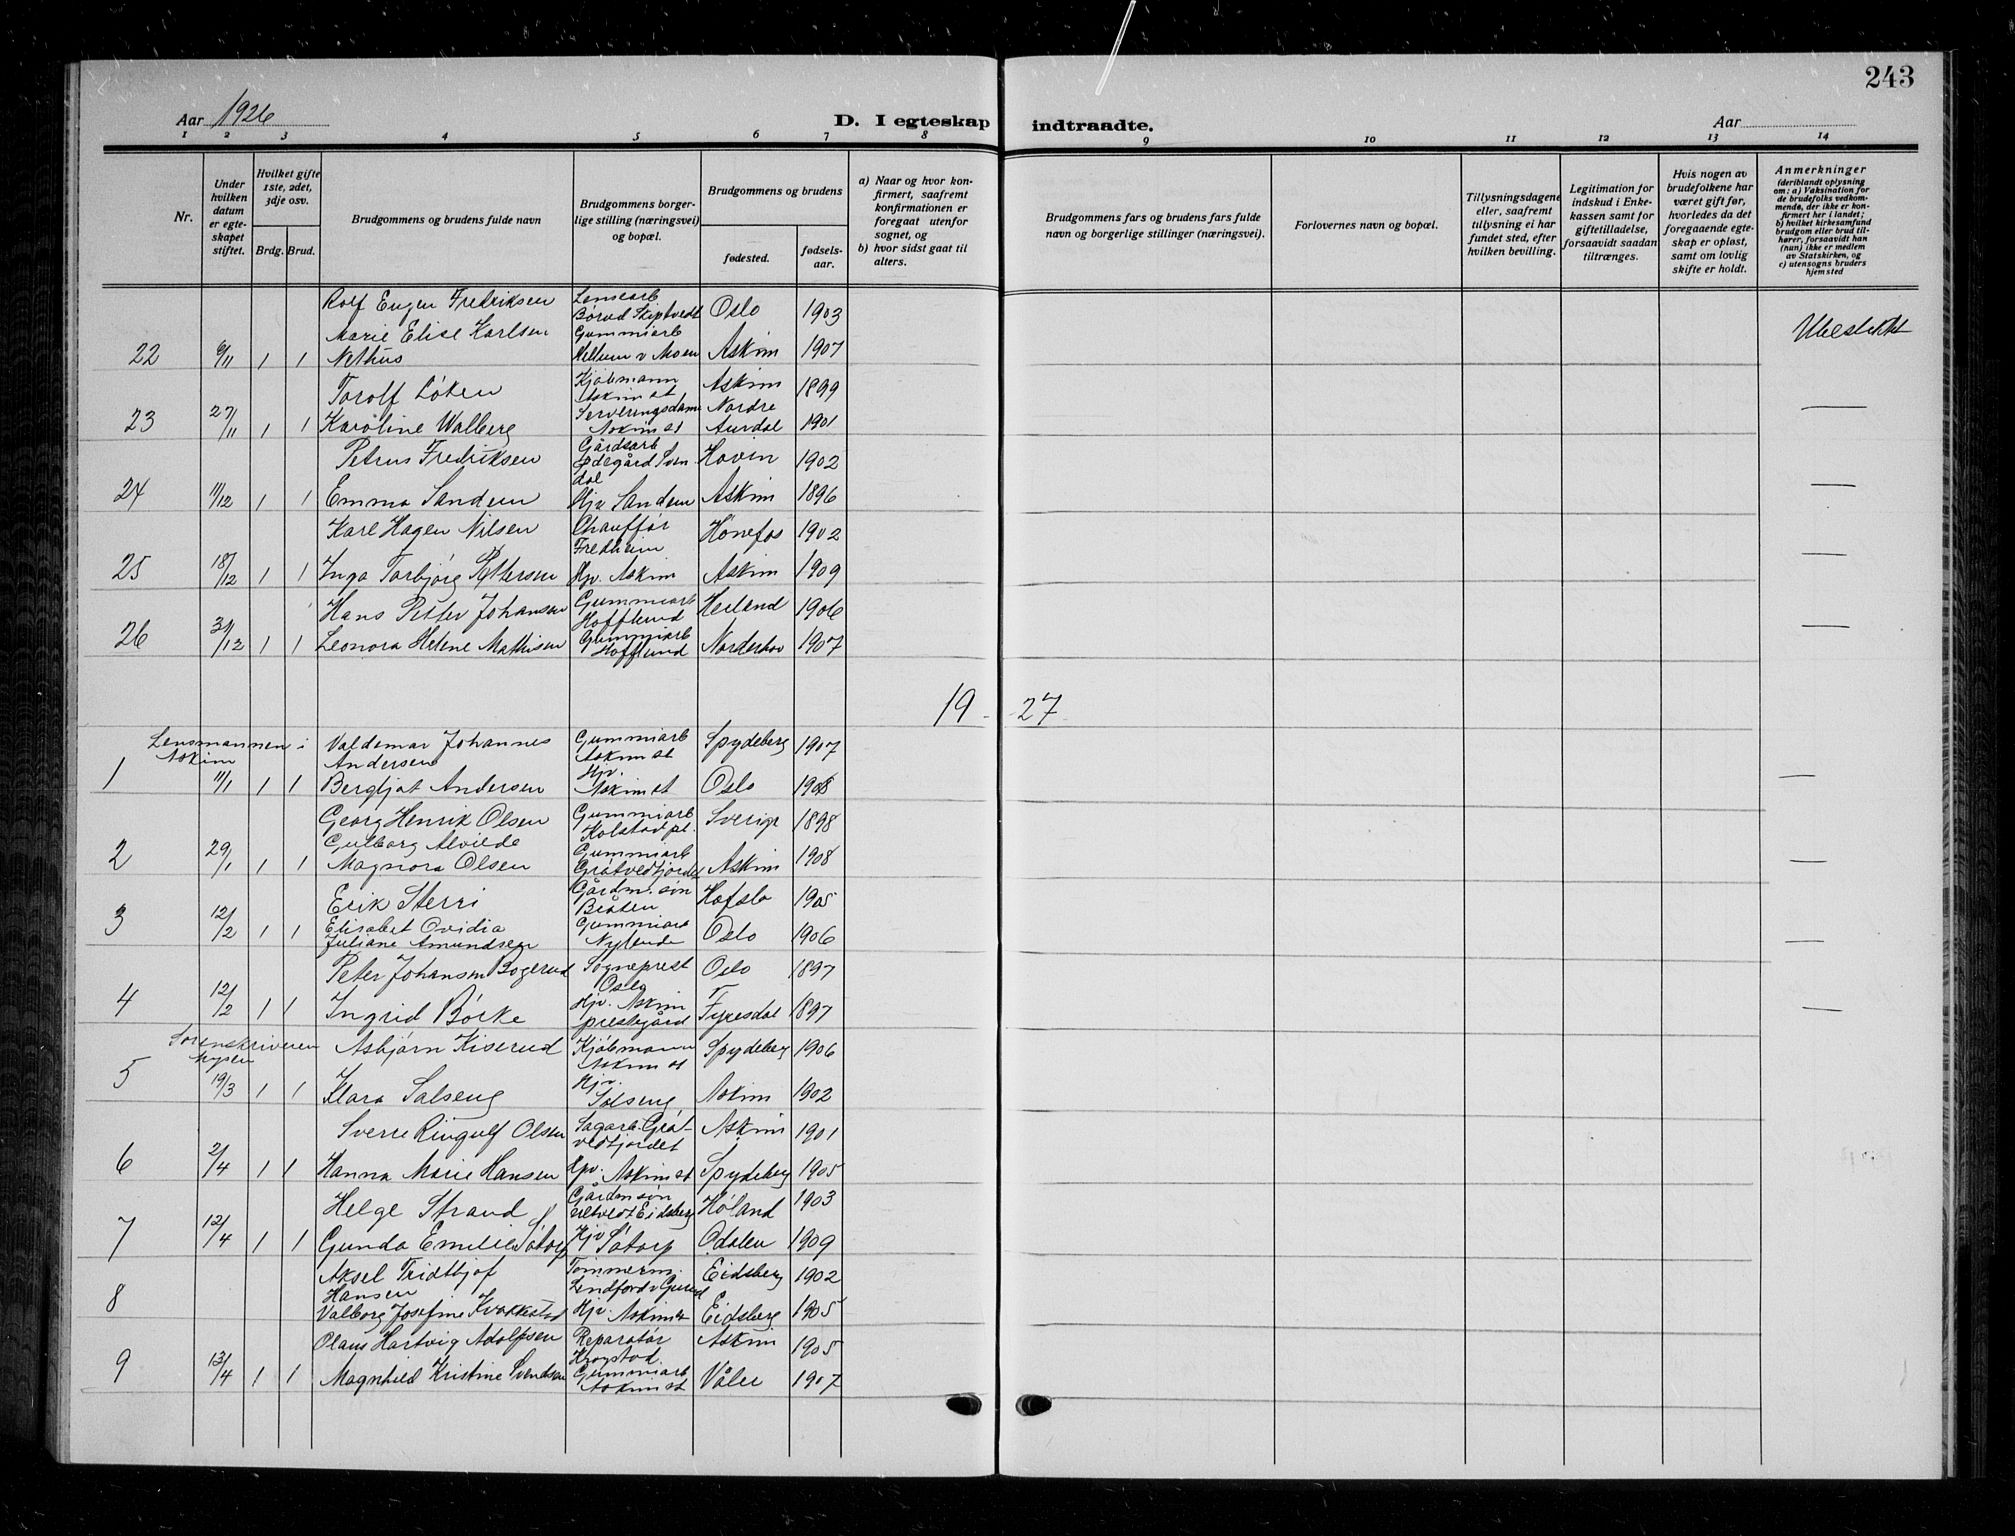 243
Aar 1926
D. I egteskap indtraadte.
Aar
1 2 3 4 5 6 7 8 9 10 11 12 13 14
Nr.
Under hvilken datum er egteskapet stiftet.
Hvilket gifte 1ste, 2det, 3dje osv.
Brdg. Brud.
Brudgommens og brudens fulde navn
Brudgommens borgerlige stilling (næringsvei) og bopæl.
Brudgommens og brudens
fødested.
fødselsaar.
a) Naar og hvor konfirmert, saafremt konfirmationen er foregaat utenfor sognet, og
b) hvor sidst gaat til alters.
Brudgommens fars og brudens fars fulde navn og borgerlige stillinger (næringsvei).
Forlovernes navn og bopæl.
Tillysningsdagene eller, saafremt tillysning ei har fundet sted, efter hvilken bevilling.
Legitimation for indskud i Enkekassen samt for giftetilladelse, forsaavidt saadan tiltrænges.
Hvis nogen av brudefolkene har været gift før, hvorledes da det foregaaende egteskap er opløst, samt om lovlig skifte er holdt.
Anmerkninger
(deriblandt oplysning om: a) Vaksination for de brudefolks vedkommende, der ikke er konfirmert her i landet; b) hvilket kirkesamfund brudgom eller brud tilhører, forsaavidt han (hun) ikke er medlem av Statskirken, og c) utensogns bruders hjemsted
Rolf Eugen Fredriksen Lensearb Børud Skiptvedt Oslo 1903
22 6/11 1 1 Marie Elise Karlsen Nethus Gummiarb v Moen Askim 1907
Torolf Løken Kjøbmann Askim st Askim 1899
23 27/11 1 1 Karoline Walberg Serveringsdame Askim st Nordre Aurdal 1901
Petrus Fredriksen Gårdsarb Ødegård Svendal Hovin 1902
24 11/12 1 1 Emma Sandem Hjv Sandem Askim 1896
Karl Hagen Nilsen Chauffør Fredheim Hønefos 1902
25 18/12 1 1 Inga Torbjørg Pettersen Hjv. Askim Askim 1909
Hans Petter Johansen Gummiarb Hofflund 1906
26 31/12 1 1 Leonora Helene Mathisen Gummiarb Hofflund Norderhov 1907
19 - 27
Lensmannen i Askim
Valdemar Johannes Andersen Gummiarb Askim st Spydeberg 1907
1 11/1 1 1 Bergljot Andersen Hjv. Askim st Oslo 1908
Georg Henrik Olsen Gummiarb Kolstad pl. Sverige 1898
2 29/1 1 1 Gulborg Alvilde Magnora Olsen Gummiarb Grøtvedtjordet Askim 1908
Erik Sterri Gårdm. søn Bråten Hafslo 1905
3 12/2 1 1 Elisabet Ovidia Juliane Amundsen Gummiarb Nylende Oslo 1906
Peter Johansen Bogerud Sogneprest Oslo Oslo 1897
4 12/2 1 1 Ingrid Børke Hjv. Askim prestegård Fyresdal 1897
Sorenskriveren Mysen
Asbjørn Kiserud Kjøbmann Askim st Spydeberg 1906
5 19/3 1 1 Klara Solseng Hjv. Solseng Askim 1902
Sverre Ringulf Olsen Sagarb. Grøtvedtjordet Askim 1901
6 2/4 1 1 Hanna Marie Hansen Hjv. Askim st Spydeberg 1905
Helge Strand Gårdm søn Eidsberg Høland 1903
7 12/4 1 1 Gunda Emilie Søtorp Hjv Søtorp Odalen 1909
Aksel Fridthjof Hansen Tømmerm. Lindford v Eidsberg 1902
8 Valborg Josefine Kvakkestad Hjv. Askim st Eidsberg 1905
Olaus Hartvig Adolfsen Reparatør Krogstad. Askim 1905
9 13/4 1 1 Magnhild Kristine Svendsen Gummiarb Askim st Våler 1907